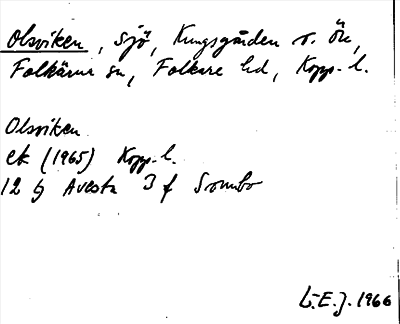 Olsviken, sjö, Kungsgården o. Ön,
Folkärna sn, Folkare hd, Kopp. l.
Olsviken
ek (1965) Kopp. l.
12 G Avesta 3 f Sonnbo
L.E.J. 1966